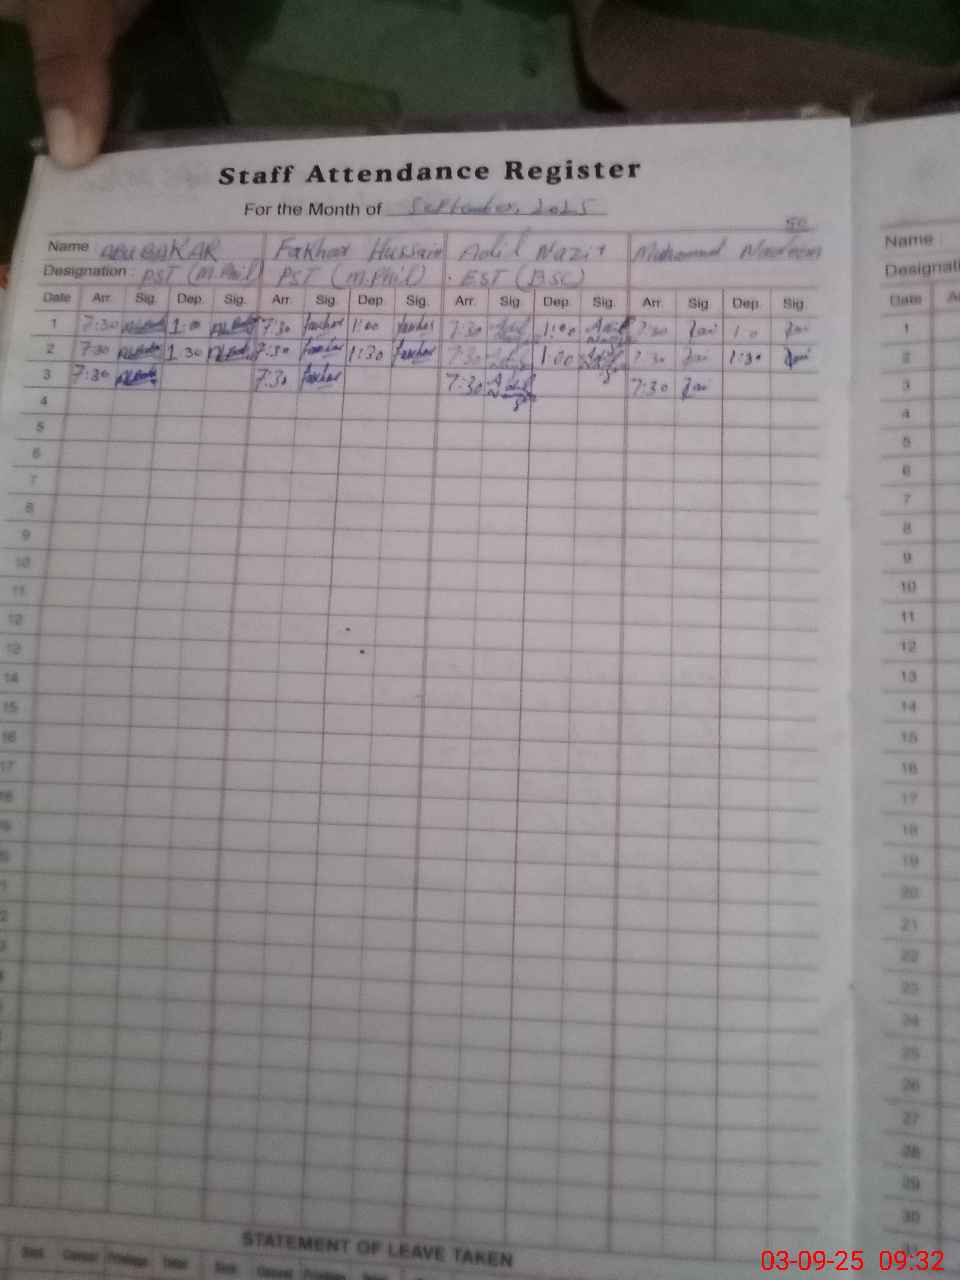 Staff Attendance Register
For the Month of September, 2025
Name ABUBAKAR Fakhar Hussain Adil Nazir Muhammad Name
Designation : PST (M.Phil) PST (M.Phil) EST (BSC) Designati
Date Arr. Sig. Dep. Sig. Arr. Sig. Dep. Sig. Arr. Sig. Dep. Sig. Arr. Sig. Dep. Sig. Date
1 7:30 1:00 7:30 Fakhar 1:00 Fakhar 7:30 Adil 1:00 Adil 7:30 1:0 1
2 7:30 1:30 7:30 Fakhar 1:30 Fakhar 7:30 Adil 1:00 Adil 7:30 1:30 2
3 7:30 7:30 Fakhar 7:30 Adil 7:30 3
4 4
5 5
6 6
7 7
8 8
9 9
10 10
11 11
12 12
13 13
14 14
15 15
16 16
17 17
18 18
19 19
20
21
22
23
24
25
26
27
28
29
30
STATEMENT OF LEAVE TAKEN
Sick Casual Privilege Total Sick Casual Privilege Total
03-09-25 09:32